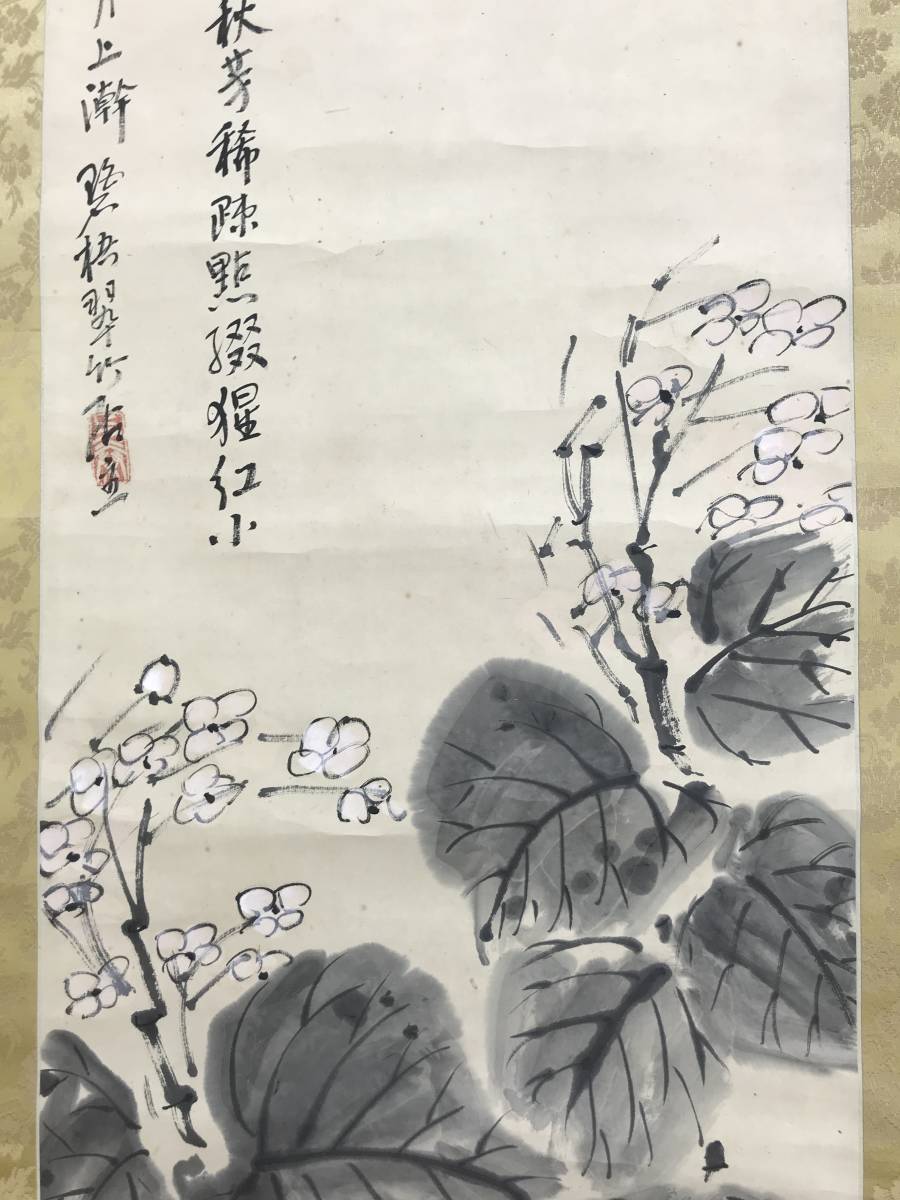 秋芳稀疎點綴猩紅小
月上澣 碧梧翠竹居主